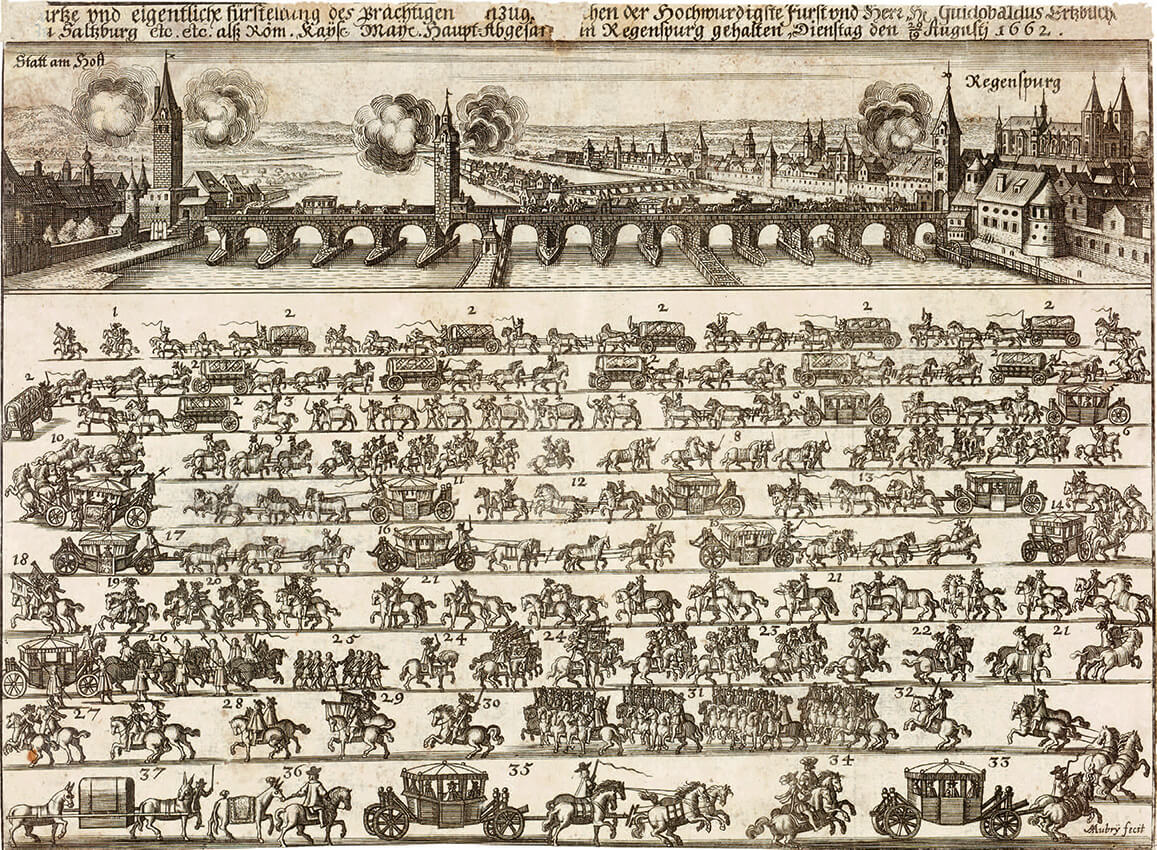 urtze vnd eigentliche fürstellung des Prächtigen nzug. hen der Hochwürdigste Fürst vnd Herr, Hr. Guidobaldus Ertzbüch.
Saltzburg etc. etc. alß Röm. Kayse. Mayt. Haupt-Abgesan in Regenspurg gehalten, Dienstag den Augustj 1662.
Statt am Hoff
Regenspurg
1 2 2 2 2 2
2 2 2 2 2 2
3 4 4 4 4
10 9 8 8 7 6
11 12 13
14
17 16 15
18
19 20 21 21
26 25 24 24 23 22 21
27 28 29 30 31 32
37 36 35 34 33
Aubrÿ fecit